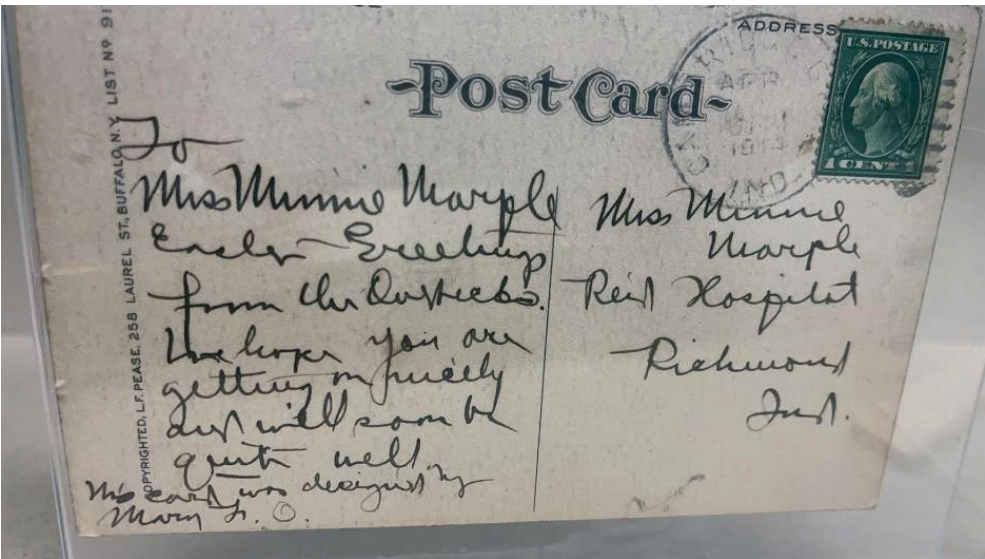 COPYRIGHTED, L.F. PEASE, 258 LAUREL ST., BUFFALO, N.Y. LIST Nº 91
ADDRESS
Post Card
U.S. POSTAGE
1 CENT
APR
IND
To
Miss Minnie Marple
Easter Greetings
from the
We hope you are
getting on nicely
and will soon be
quite well
This card was designed by
Mary L. O.
Miss Minnie
Marple
Reid Hospital
Richmond
Ind.